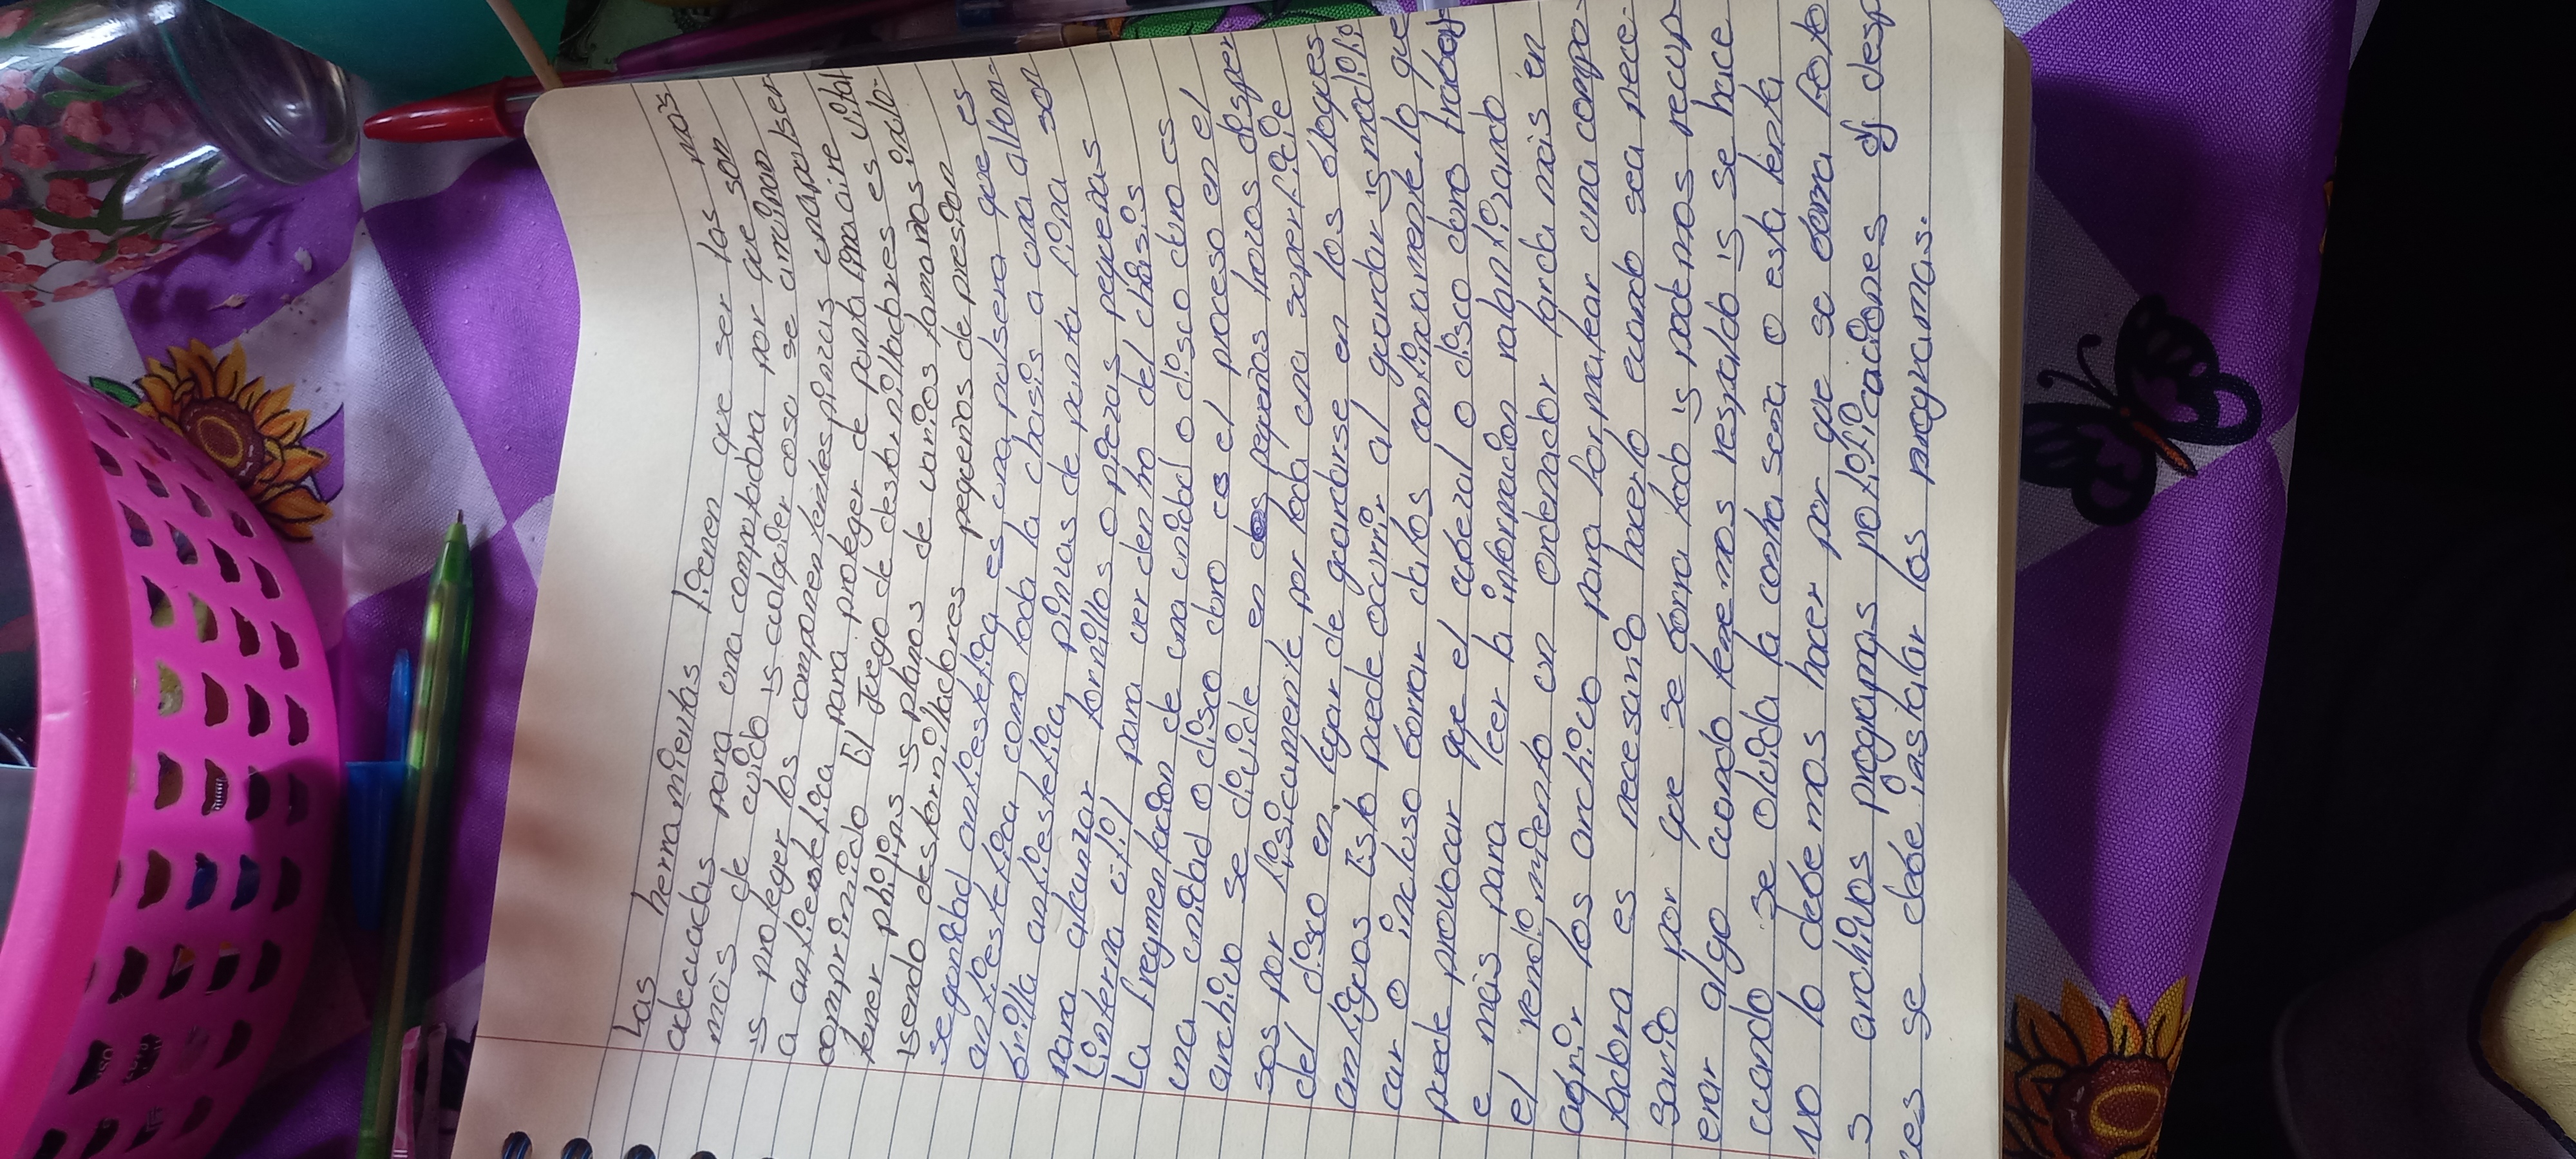 Las herramientas tienen que ser las más
adecuadas para una computadora por que son
más de cuido is cualquier cosa se arruinan
is proteger los componententes pinzas enármolser
a antiestetica para proteger de pantalma aire
comprimido El juego de destornilladores es vital
tener philips is planos de varios tamanos inclo-
isendo destornilladores pequeños de presion
seguridad antiestetica es una pulsera que es
antiestetica como toda la chasis a una alfom-
brilla antiestetica pinuas de punta fina son
para alcanzar tornillos o piezas pequeñas
Linterna util para ver dentro del chasis
La fregmentacion de una unidad o disco duro es
una unidad o disco duro es el proceso en el
archivo se divide en pequeños trozos disper
sos por fisicamente por toda una superficie
del disco en lugar de guardarse en los bloques
antiguos Esto puede ocurrir al guardar is modifi
car o incluso borrar datos continuamente lo que
puede provocar que el cabezal o disco duro trabaj
e más para leer la informacion ralantizando
el rendimiento un ordenador tarda más en
abrir los archivo para formatear una compu-
tadora es necesario hacerlo cuando sea nece-
sario por que se borra todo is podemos recup
erar algo cuando tenemos respaldo is se hace
cuando se olvida la contra sena o esta lenta
no lo debemos hacer por que se borra foto
s archivos programas notificaciones y desp
ues se debe instalar los programas.